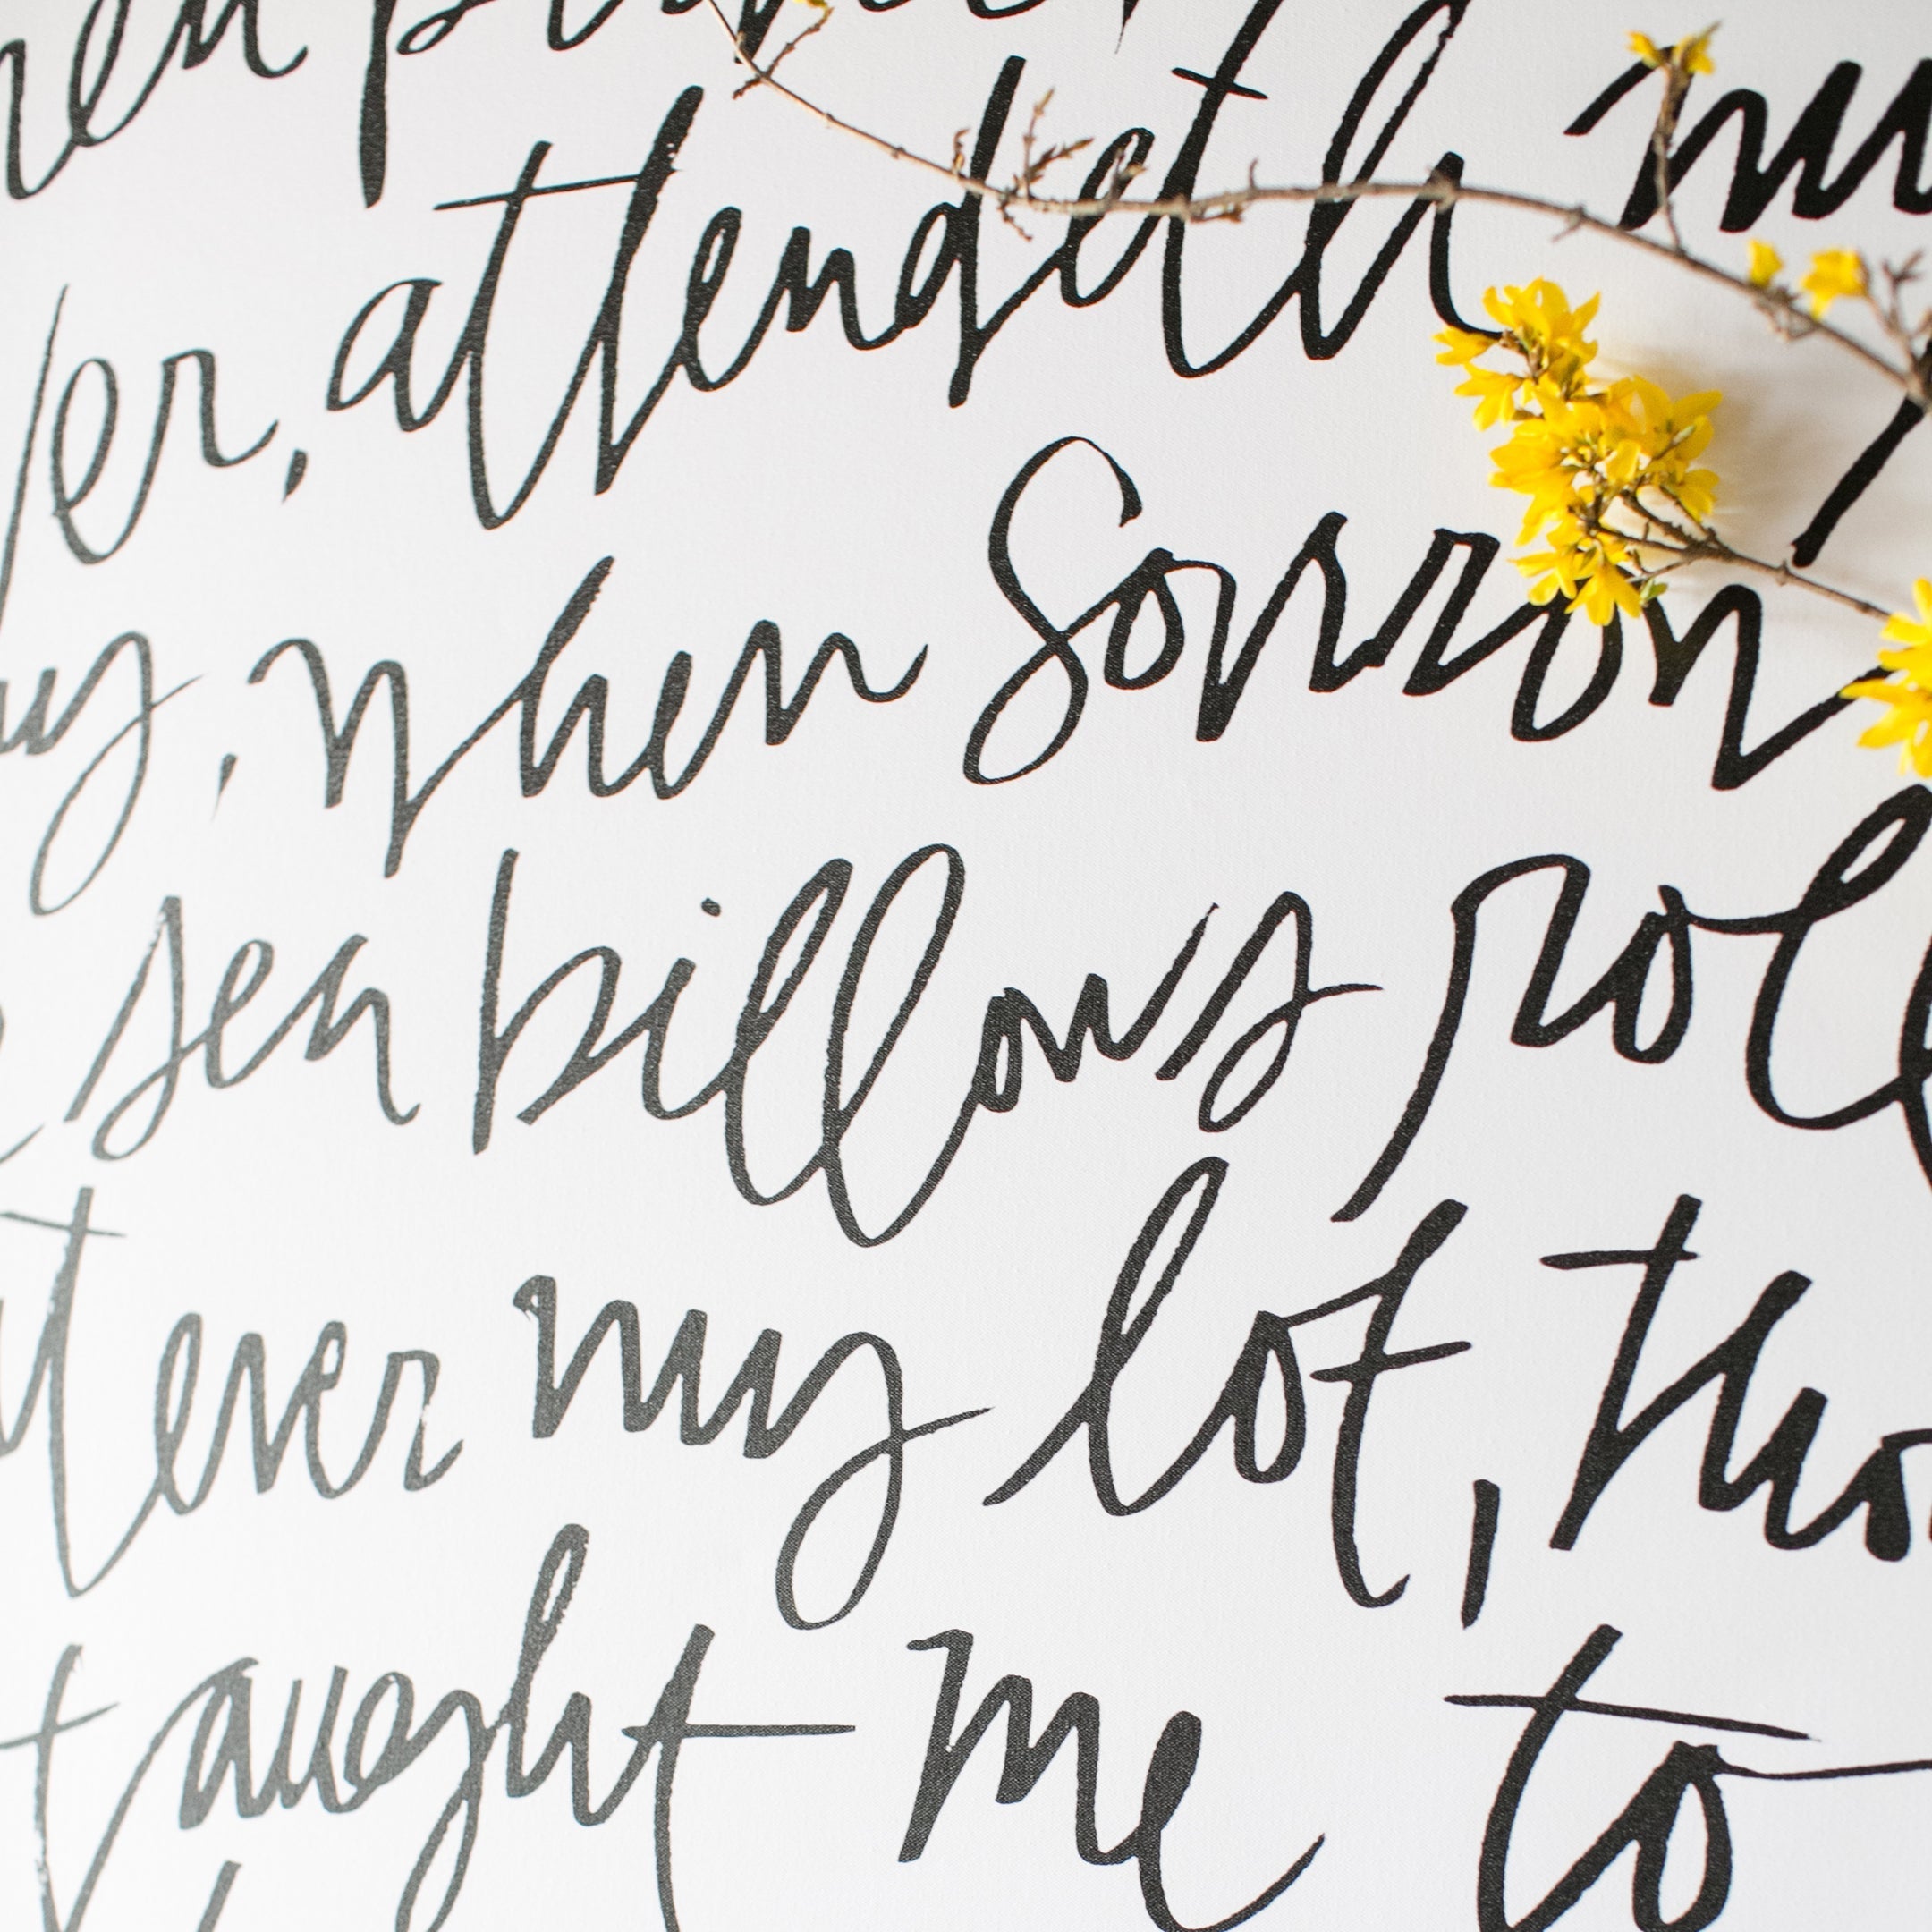 hen peace,
ver, attendeth my
ay, when Sorrow
sea billows roll
tever my lot, tho
taught me to